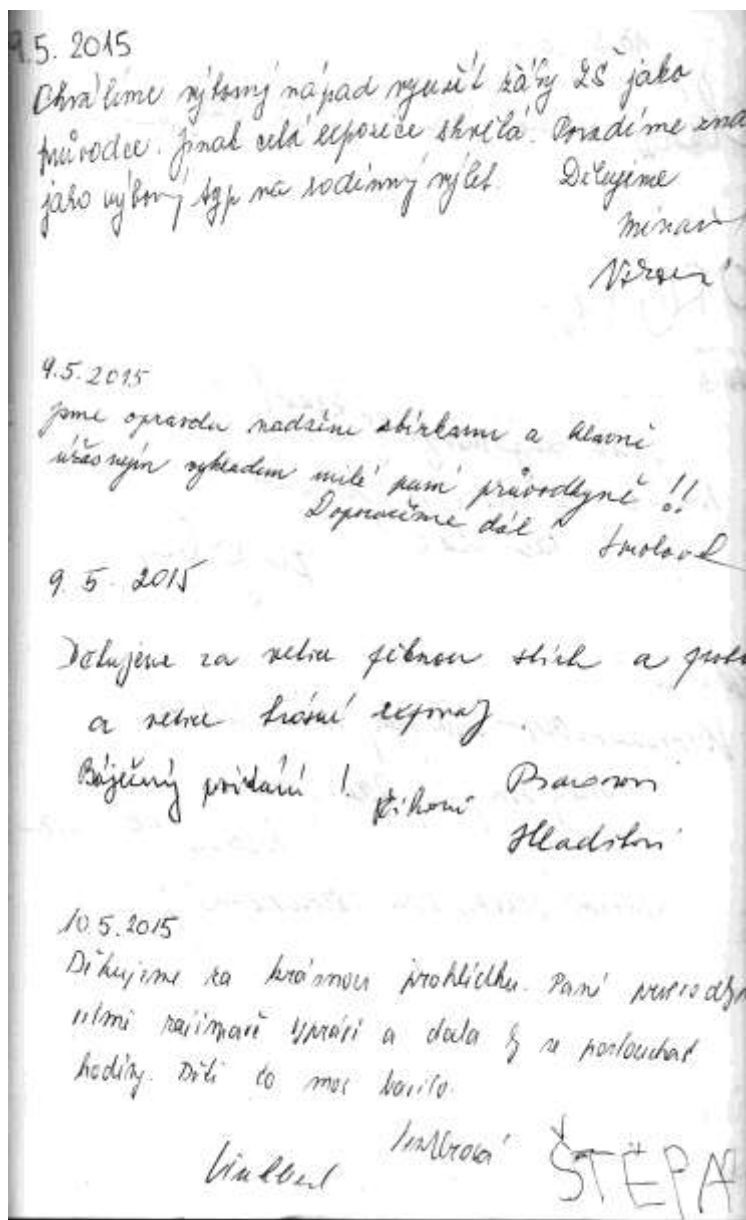 9.5.2015
Chválíme výborný nápad využít žáky ZŠ jako
průvodce. Jinak celá expozice skvělá. Poradíme
jako výborný typ na rodinný výlet. Děkujeme
9.5.2015
Jsme opravdu nadšeni sbírkami a hlavně
úžasným výkladem milé paní průvodkyně!!
Doporučíme dál
9.5.2015
Děkujeme za velice pěknou sbírku a
a velice krásné exponáty
Báječný povídání!
Hladíkovi
10.5.2015
Děkujeme za krásnou prohlídku. Paní
velmi zajímavě vypráví a dala by se poslouchat
hodiny. Děti to moc bavilo.
ŠTĚPA